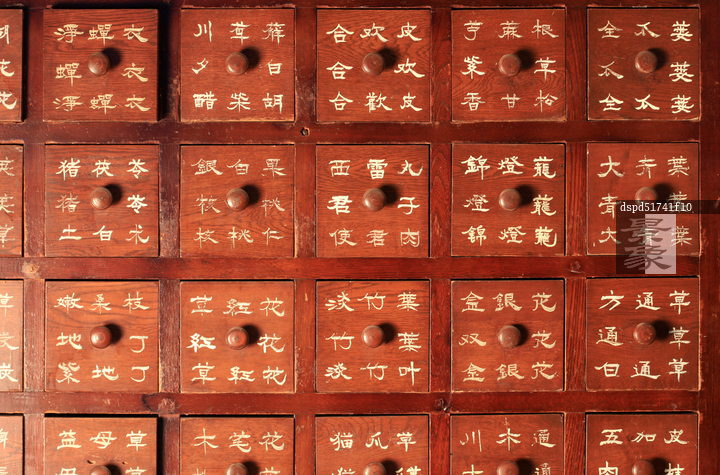 蟬衣
蟬 蟬衣
蟬衣
川草薢
白
醋柴胡
合欢皮
合 欢
合歡皮
麻根
藁 草
香甘松
全瓜蒌
瓜 蒌
全瓜蒌
猪茯苓
猪 苓
土白术
銀白果
桃
核桃仁
西雷丸
君 子
使君肉
錦燈蘢
燈 蘢
錦燈蘢
大青葉
青 葉
大青葉
嫩桑枝
地 丁
紫地丁
荳紅花
紅 花
草紅花
淡竹葉
竹 葉
淡竹叶
金銀花
双 花
金銀花
方通草
通 草
白通草
益母草
木笔花
猫爪草
川木通
五加皮
dspd51741f10